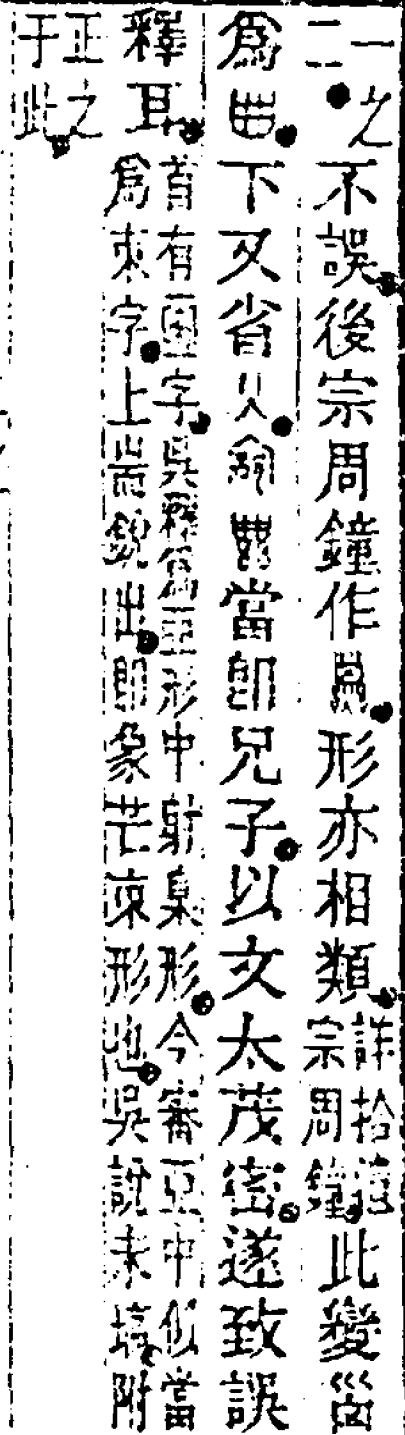 一之二不誤後宗周鐘作形亦相類詳拾遺宗周鐘此變甾
為甾下又省當即兄子以文太茂密遂致誤
釋耳首有字吳釋為亞形中射臬形今審亞中似當為朿字上耑銳出即象芒朿形也吳說未塙附
正之于此